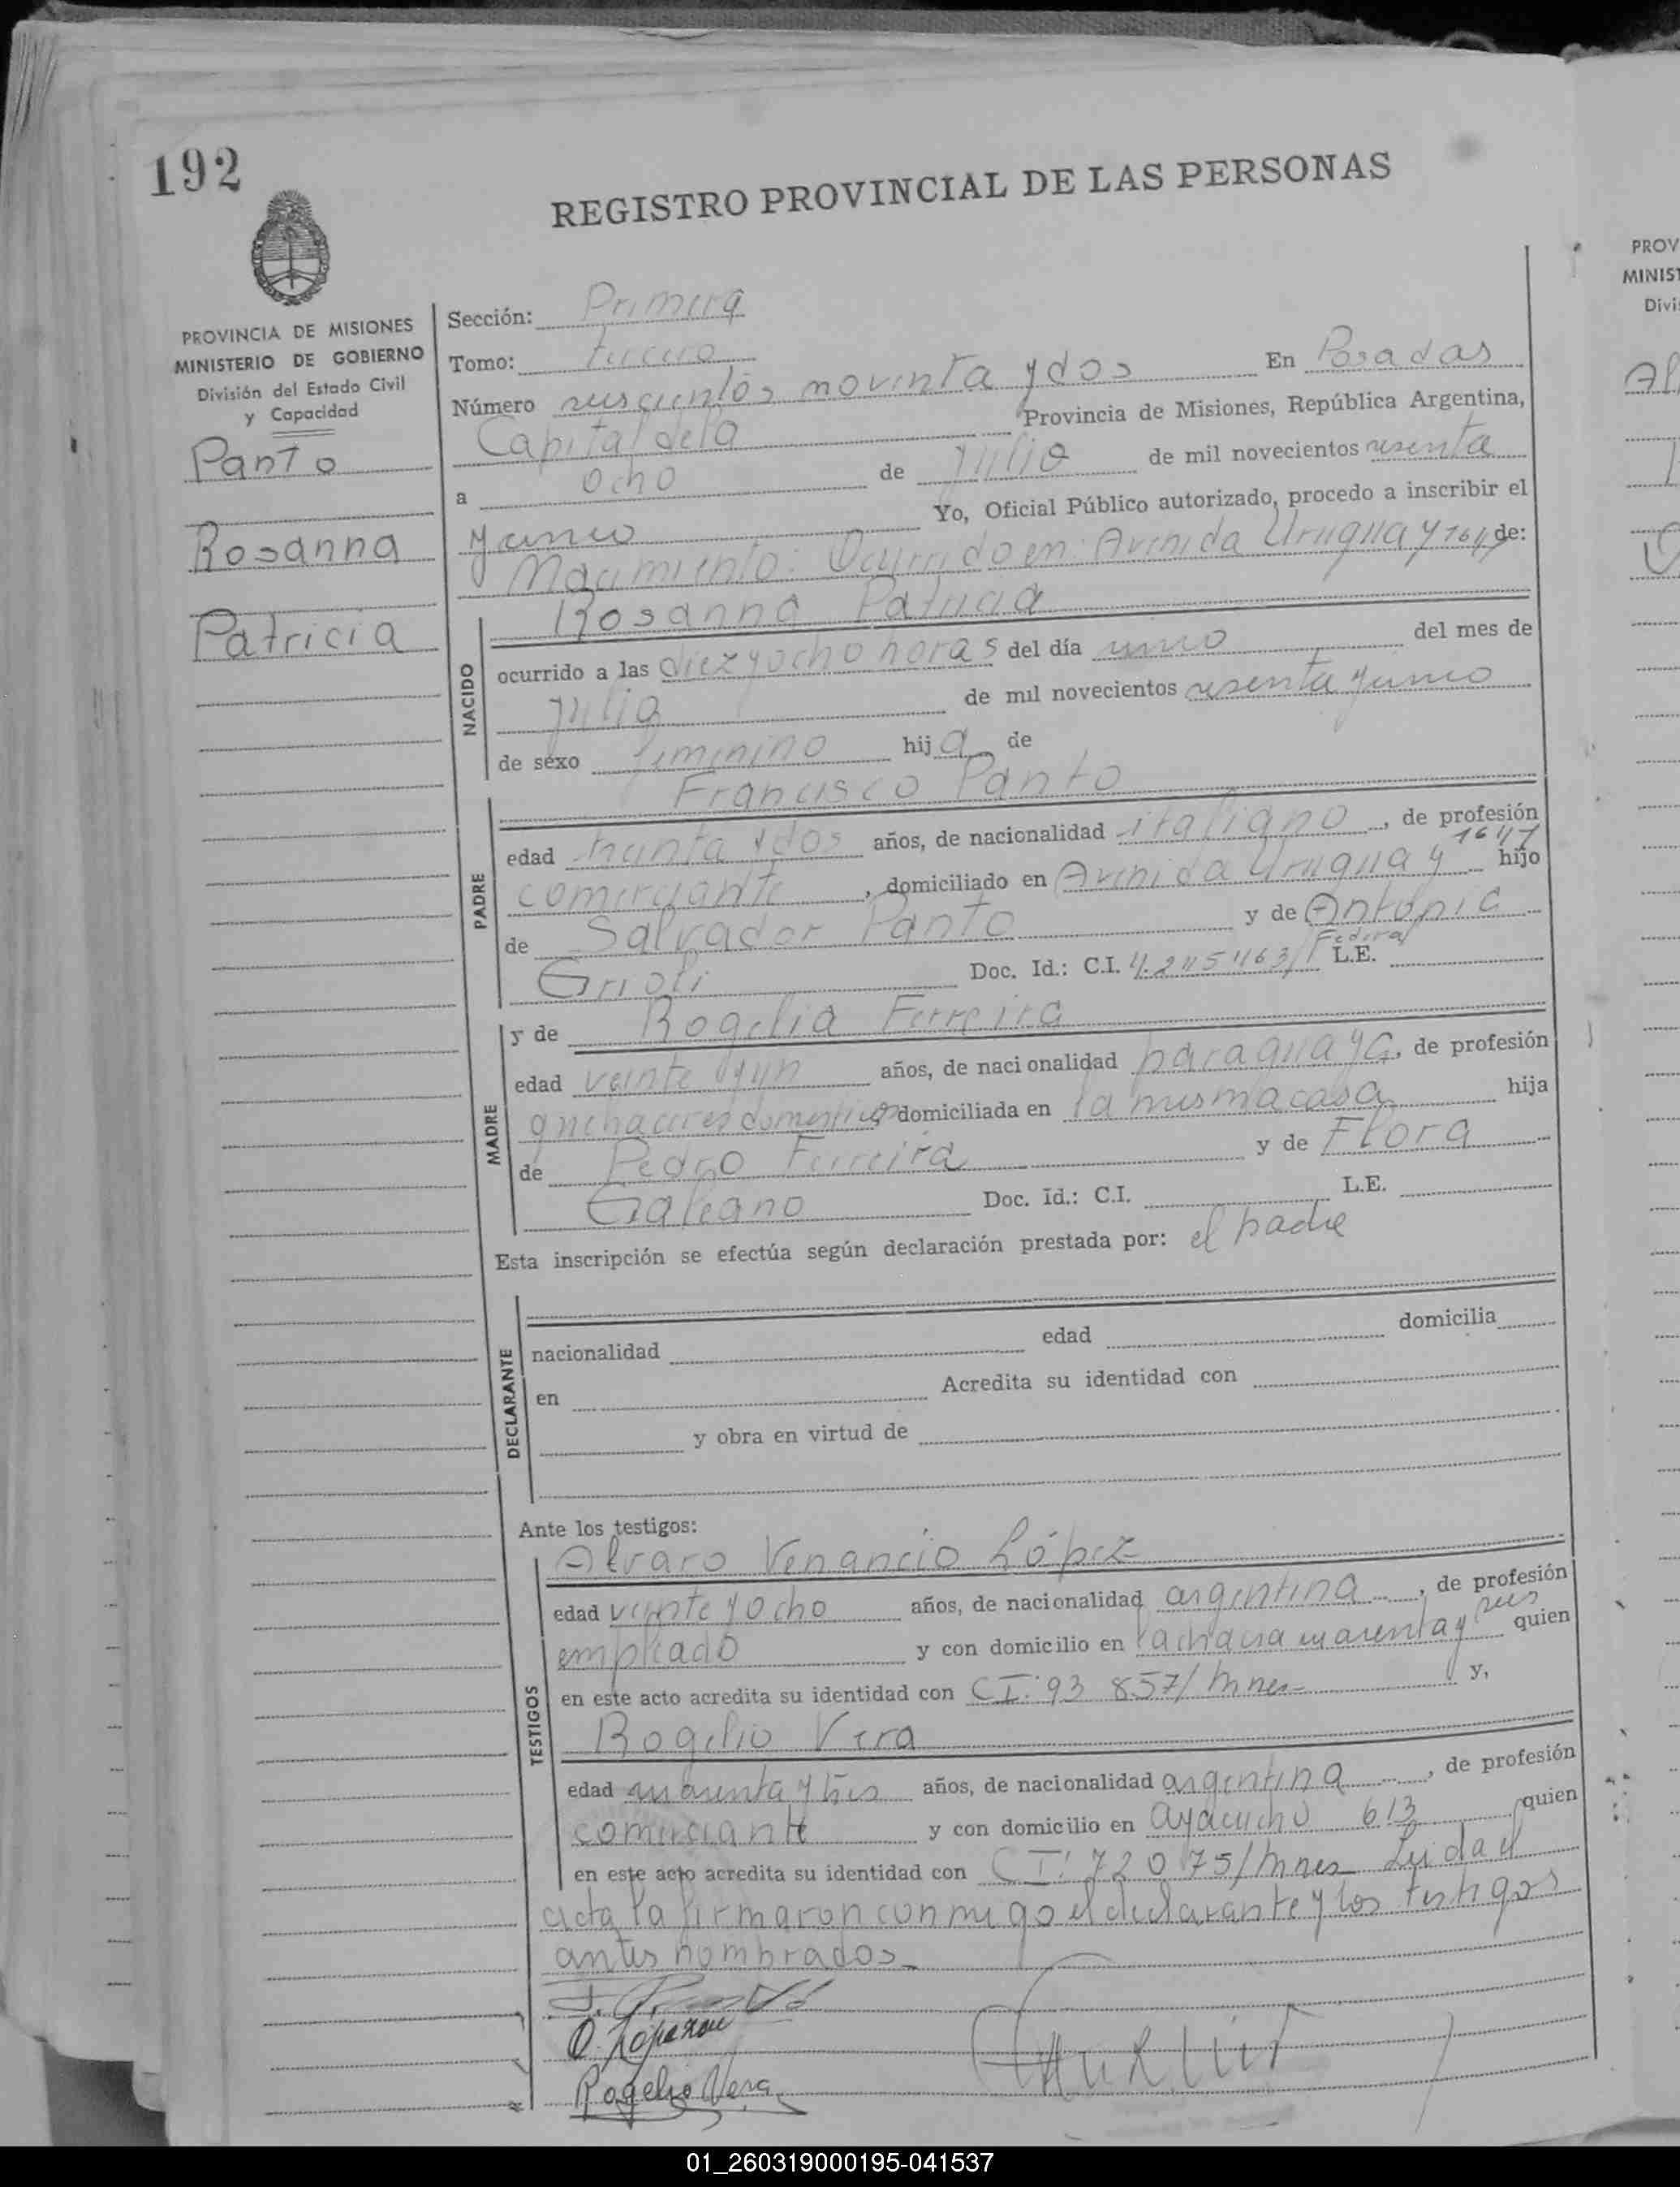 192
REGISTRO PROVINCIAL DE LAS PERSONAS
PROVINCIA DE MISIONES
MINISTERIO DE GOBIERNO
División del Estado Civil
y Capacidad
Panto
Rosanna
Patricia
Sección: Primera
Tomo: tercero
Número seiscientos noventa y dos En Posadas
Capital de la Provincia de Misiones, República Argentina,
a ocho de Julio de mil novecientos sesenta
y cinco Yo, Oficial Público autorizado, procedo a inscribir el
Nacimiento: Ocurrido en: Avenida Uruguay 1647 de:
NACIDO
Rosanna Patricia
ocurrido a las diez y ocho horas del día uno del mes de
Julio de mil novecientos sesenta y cinco
de sexo femenino hija de
PADRE
Francisco Panto
edad treinta y dos años, de nacionalidad italiano, de profesión
comerciante, domiciliado en Avenida Uruguay 1647 hijo
de Salvador Panto y de Antonia
Grioli Doc. Id.: C.I. 4.245463/P Federal L.E.
MADRE
y de Rogelia Ferreira
edad veinte y un años, de nacionalidad paraguaya, de profesión
quehaceres domesticos domiciliada en la misma casa hija
de Pedro Ferreira y de Flora
Galeano Doc. Id.: C.I. L.E.
Esta inscripción se efectúa según declaración prestada por: el padre
DECLARANTE
nacionalidad edad domicilia
en Acredita su identidad con
y obra en virtud de
Ante los testigos:
TESTIGOS
Alvaro Venancio López
edad veinte y ocho años, de nacionalidad argentina, de profesión
empleado y con domicilio en la chacra cuarenta y seis quien
en este acto acredita su identidad con CI: 93 857/Mnes y,
Rogelio Vera
edad cuarenta y tres años, de nacionalidad argentina, de profesión
comerciante y con domicilio en Ayacucho 613 quien
en este acto acredita su identidad con CI: 72 075/Mnes Leida el
acta la firmaron conmigo el declarante y los testigos
antes nombrados
Rogelio Vera
PROV
MINIST
Divi
01_260319000195-041537